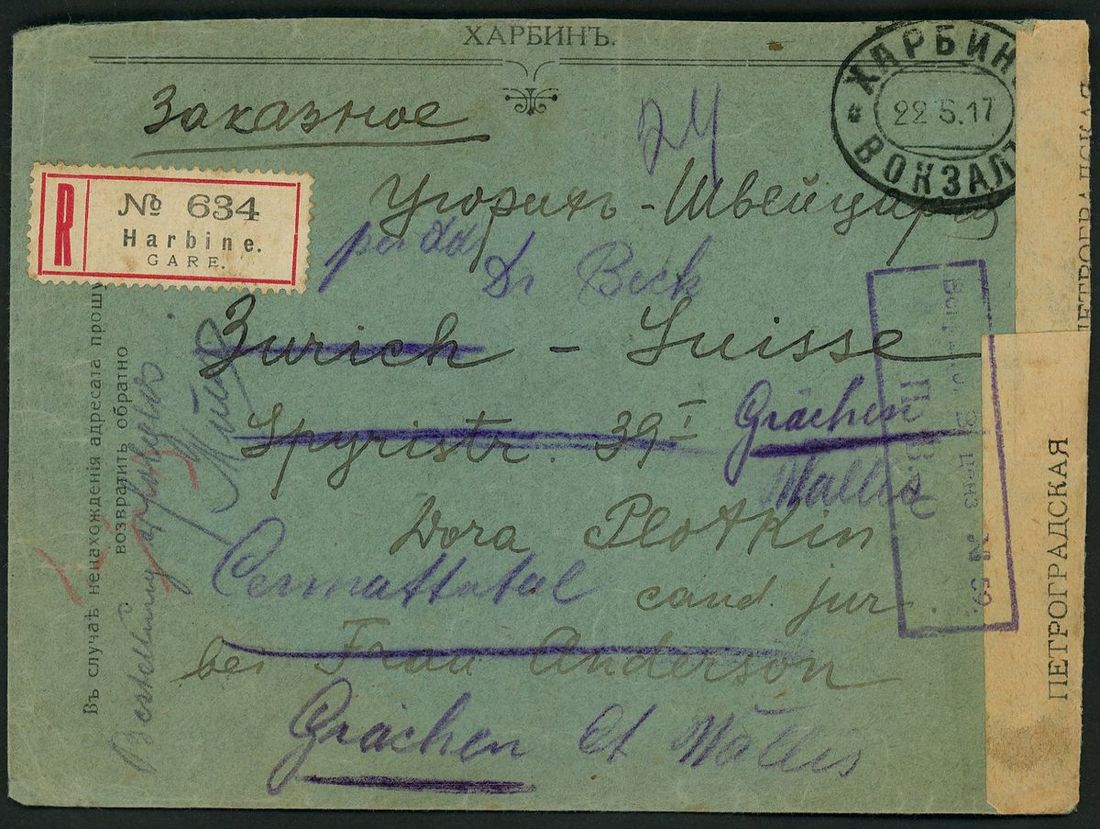 ХАРБИНЪ.
Заказное
24
ХАРБИНЪ
22 5.17
ВОКЗАЛЪ
R
№ 634
Harbine.
GARE.
Цюрихъ - Швейцарія
Dr Beck
Zurich - Suisse
Spyristr. 39 I
Grächen
Wallis
Dora Plotkin
cand. jur.
bei Frau Anderson
Grächen Ct Wallis
Въ случаѣ ненахожденія адресата прошу
возвратить обратно
П. В. Ц.
ПЕТРОГРАДСКАЯ
ПЕТРОГРАДСКАЯ